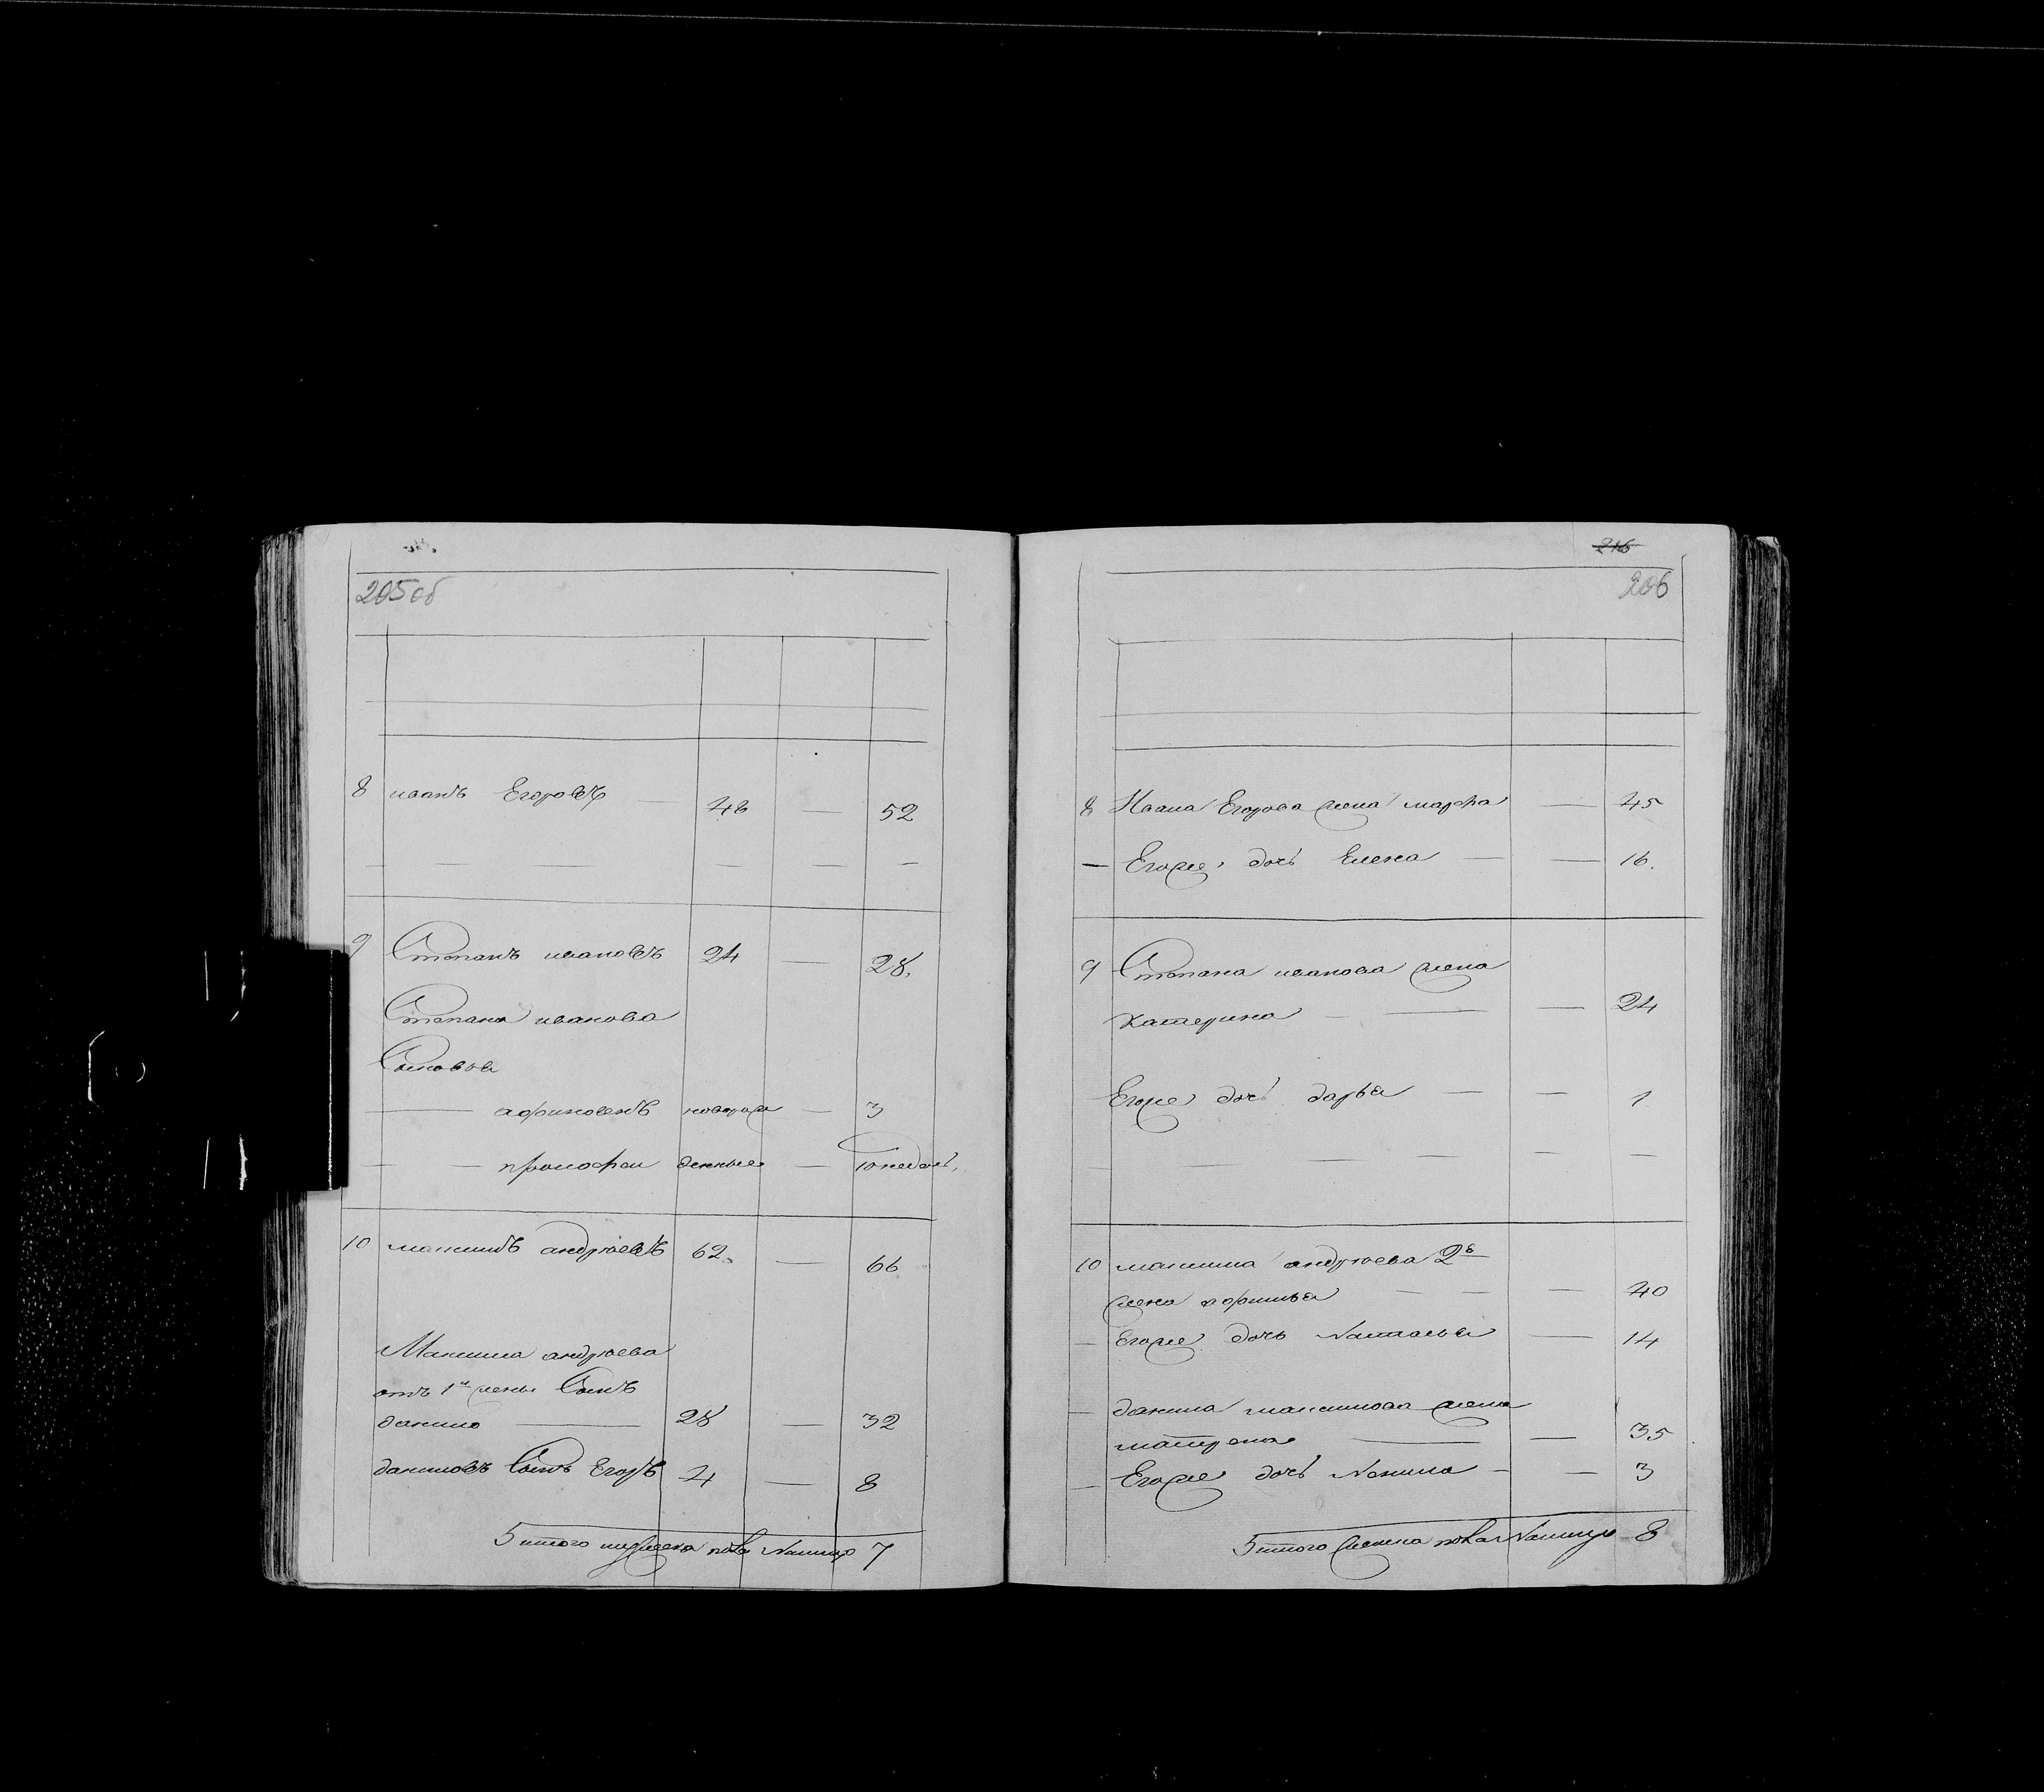 205 об
8 иванъ Егоровъ — 48 — 52
— — — — — —
9 Степанъ ивановъ 24 — 28.
Степана иванова
Сыновья
— афиногенъ новорож — 3
— — денные — 10 недель.
10 максимъ андрѣевъ 62. — 66
Максима андрѣева
отъ 1й жены Сынъ
данило — 28 — 32
даниловъ Сынъ Егоръ 4 — 8
5 итого мужеска пола Налицо 7
216
206
8 Ивана Егорова жена марфа — 45
— Егоже дочь Елена — — 16.
9 Степана иванова жена
катерина — — — 24
Егоже дочь дарья — — 1
— — — — —
10 максима андрѣева 2я
жена — — — 40
— Егоже дочь Наталья — 14
— данила максимова жена
матрена — — 35
— Егоже дочь — — 3
5 итого женска пола Налицо 8